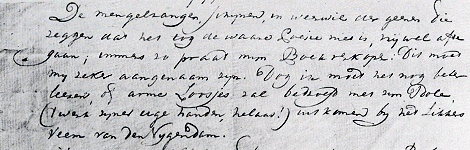 De mengelzangen, schynen, in weerwil der geenen die
zeggen dat het tog de waare Poëzie niet is, nogwel afte
gaan; immers zo praat myn Boekverkoper. Dit moet
my zeker aangenaam zyn. Dog ik moet het nog bele
leezen, of arme Loosjes zal bedroefd met zyn
('t werk zyner eige handen helaas!) uitkomen by het
Veem van den Vygendam.